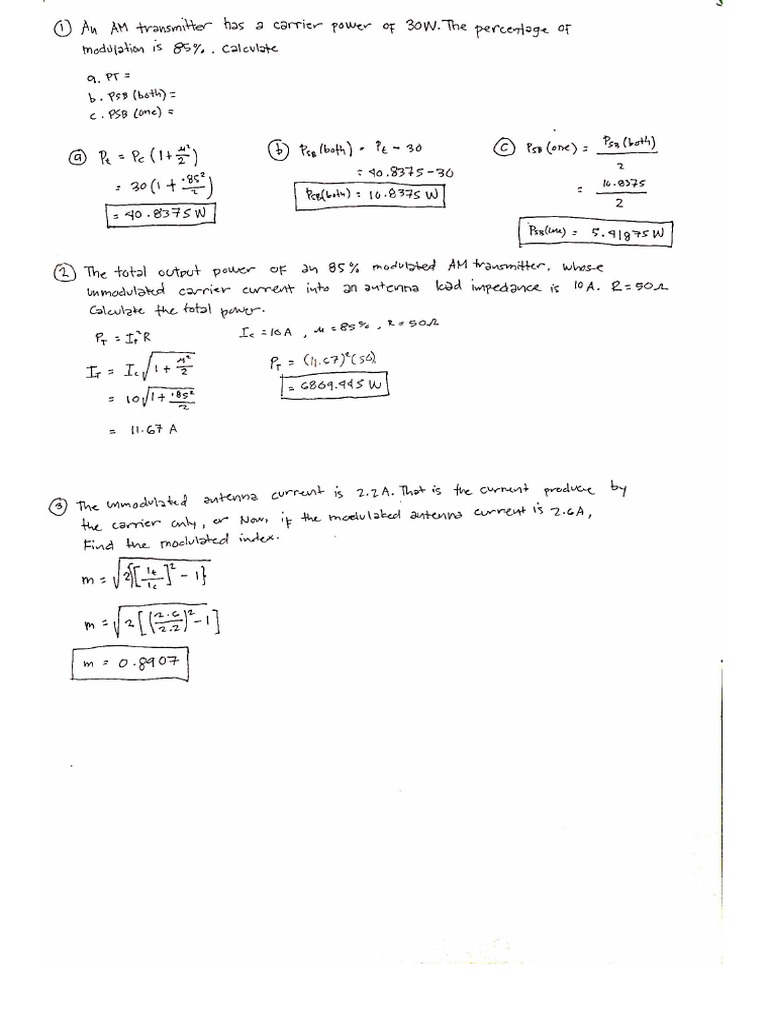 ① An AM transmitter has a carrier power of 30W. The percentage of
modulation is 85%. Calculate
a. PT =
b. PSB (both) =
c. PSB (one) =
ⓐ Pt = Pc (1 + μ²/2)
= 30 (1 + .85²/2)
= 40.8375 W
ⓑ PSB (both) = Pt - 30
= 40.8375 - 30
PSB(both) = 10.8375 W
ⓒ PSB (one) = PSB (both) / 2
= 10.8375 / 2
PSB(one) = 5.41875 W
② The total output power of an 85% modulated AM transmitter, whose
unmodulated carrier current into an antenna load impedance is 10A. R = 50Ω
Calculate the total power.
PT = IT²R
IT = Ic √(1 + μ²/2)
= 10 √(1 + .85²/2)
= 11.67 A
Ic = 10 A, μ = 85%, R = 50Ω
PT = (11.67)² (50)
= 6809.445 W
③ The unmodulated antenna current is 2.2A. That is the current produce by
the carrier only, or Now, if the modulated antenna current is 2.6A,
Find the modulated index.
m = √2{[It/Ic]² - 1}
m = √2[(2.6/2.2)² - 1]
m = 0.8907